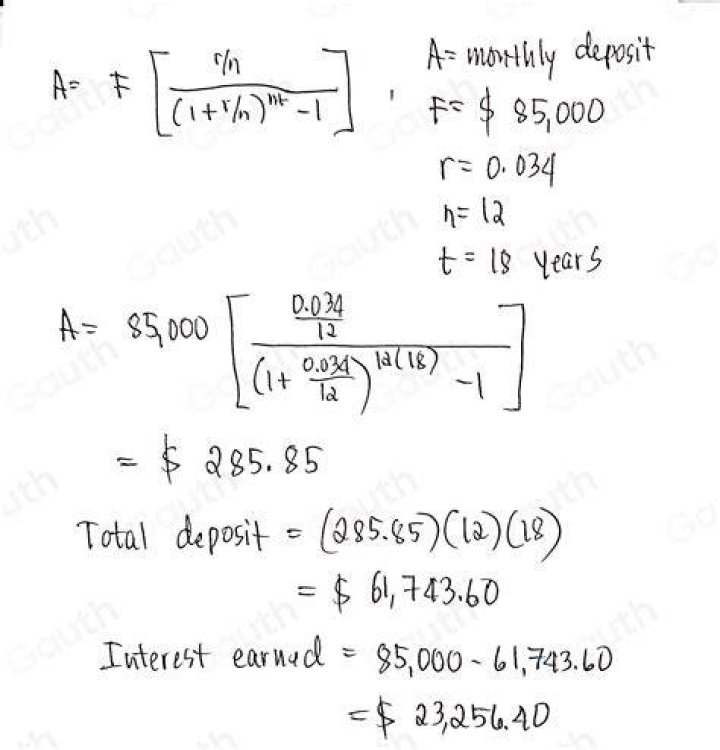 A= F [ r/n / (1+r/n)^nt -1 ] , A= monthly deposit
F= $ 85,000
r= 0.034
n= 12
t= 18 years
A= 85,000 [ 0.034/12 / (1+ 0.034/12)^12(18) -1 ]
= $ 285.85
Total deposit = (285.85)(12)(18)
= $ 61,743.60
Interest earned = 85,000 - 61,743.60
= $ 23,256.40
Gauth